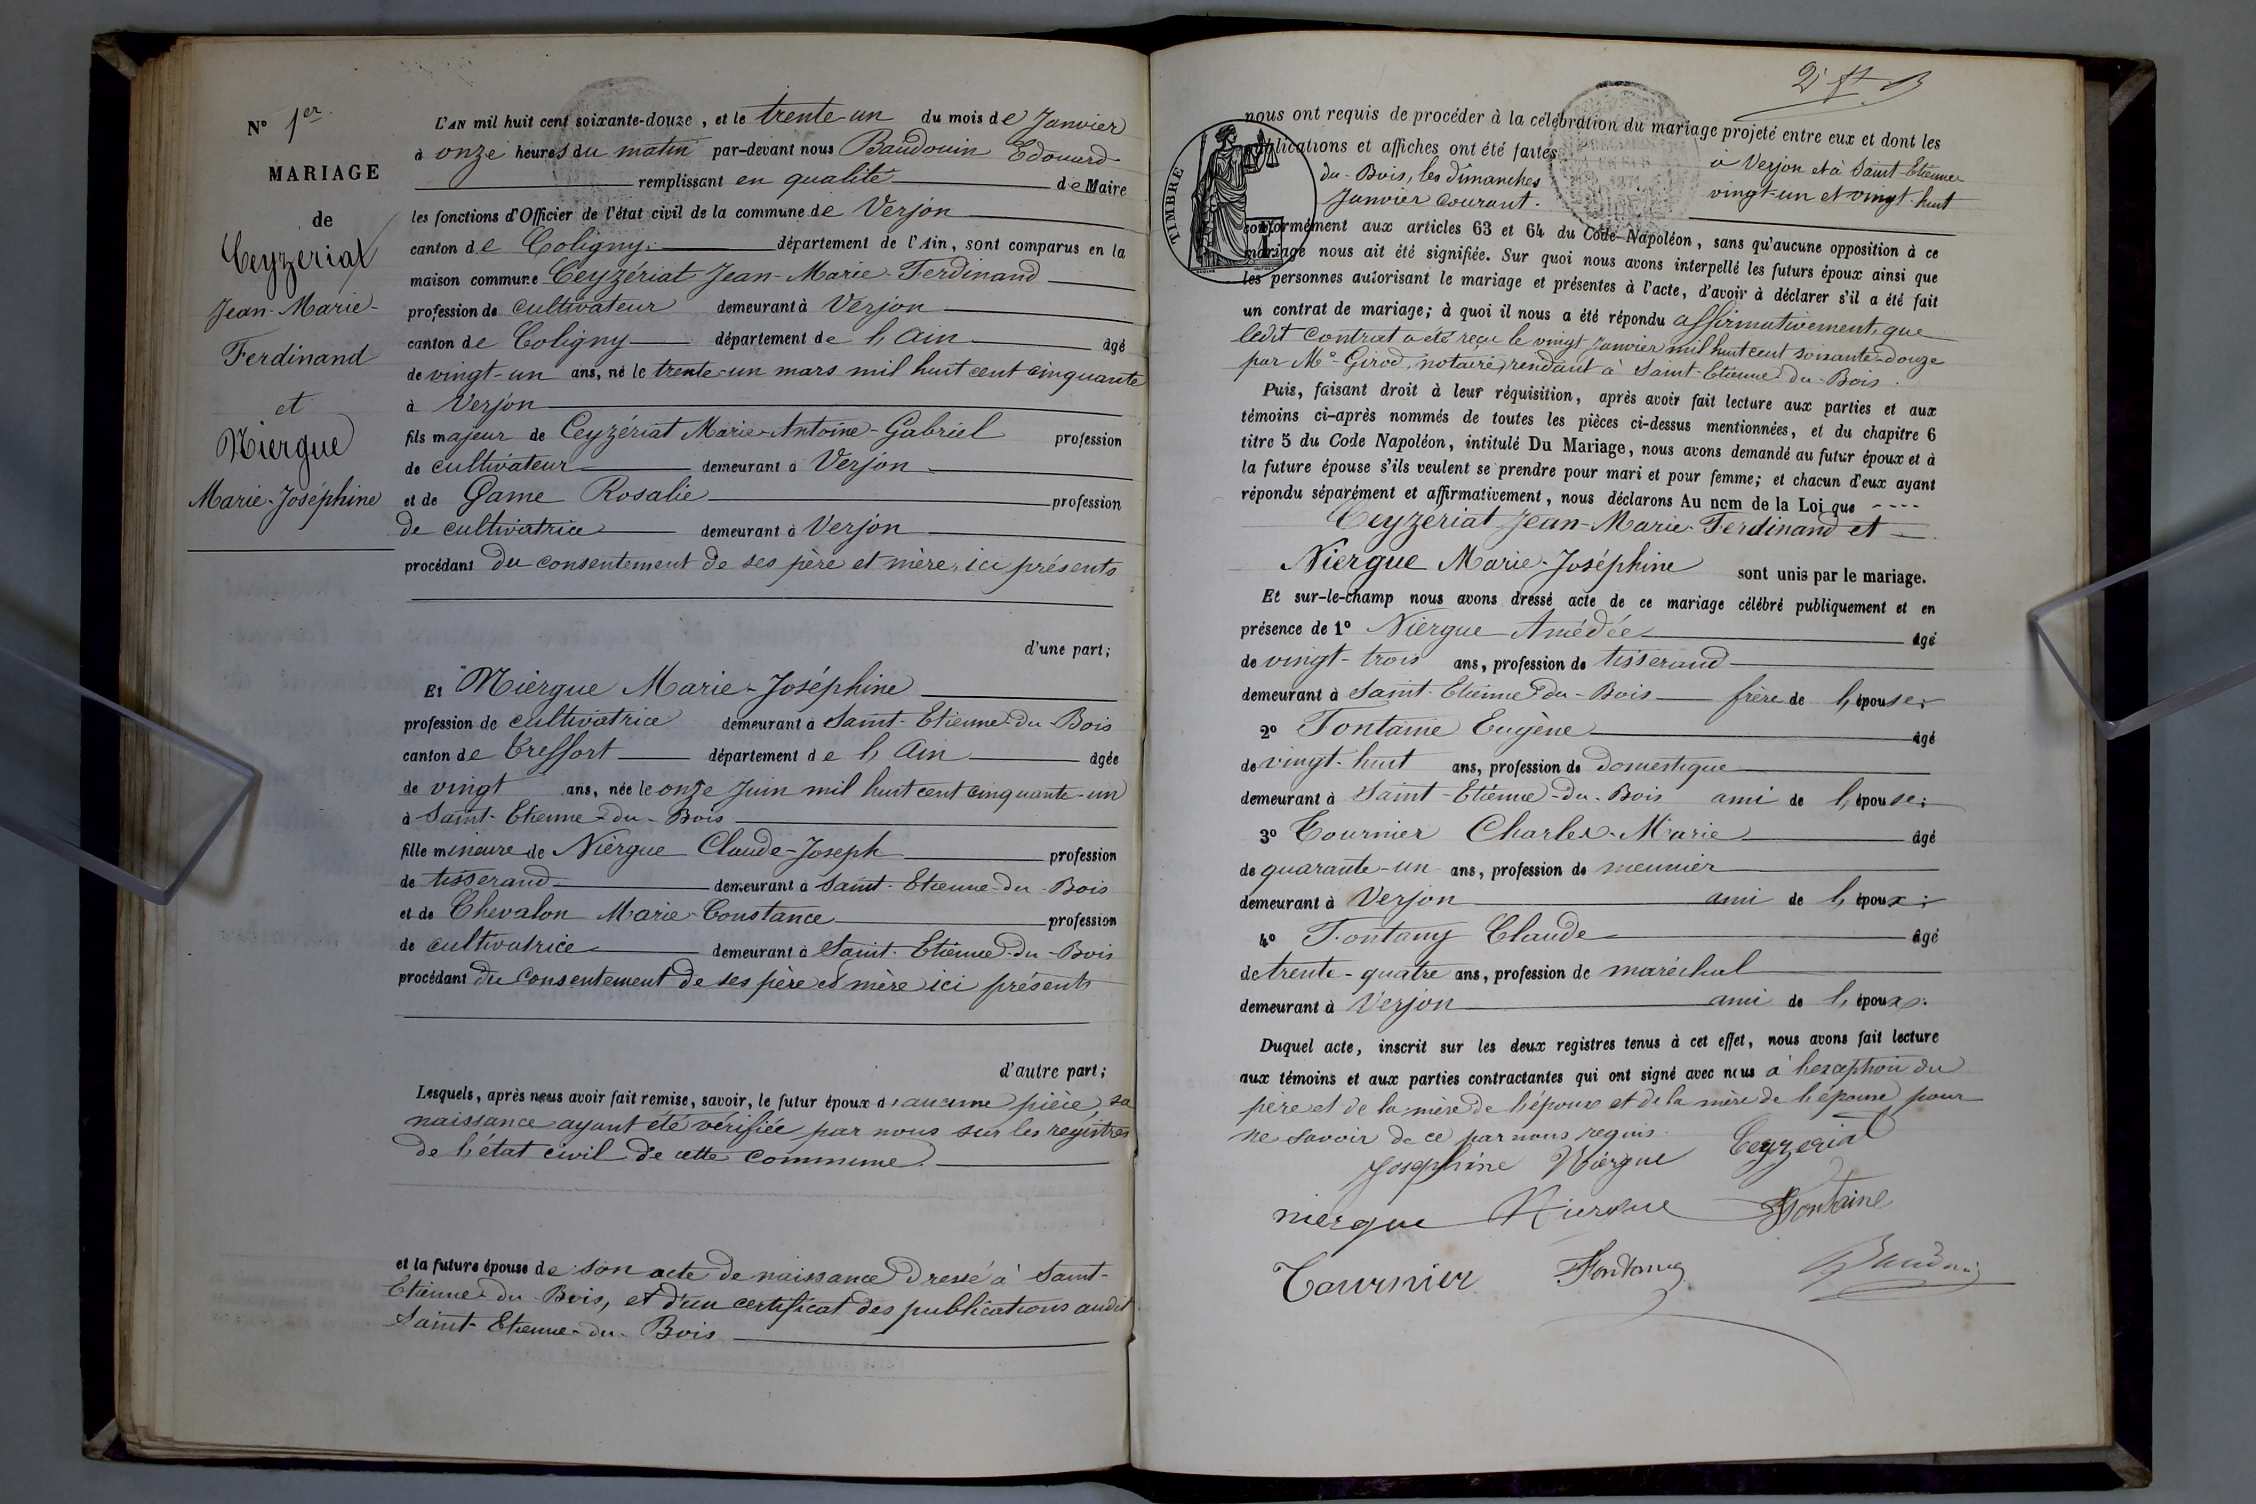 N° 1er
MARIAGE
de
Ceyzeriat
Jean-Marie-
Ferdinand
et
Niergue
Marie-Joséphine
L'AN mil huit cent soixante-douze, et le trente-un du mois de Janvier
à onze heures du matin par-devant nous Baudouin Edouard
remplissant en qualité de Maire
les fonctions d'Officier de l'état civil de la commune de Verjon
canton de Coligny département de l'Ain, sont comparus en la
maison commune Ceyzériat Jean-Marie-Ferdinand
profession de cultivateur demeurant à Verjon
canton de Coligny département de l'Ain âgé
de vingt-un ans, né le trente-un mars mil huit cent cinquante
à Verjon
fils majeur de Ceyzériat Marie-Antoine-Gabriel profession
de cultivateur demeurant à Verjon
et de Game Rosalie profession
de cultivatrice demeurant à Verjon
procédant du consentement de ses père et mère, ici présents
d'une part;
Et Niergue Marie-Joséphine
profession de cultivatrice demeurant à Saint-Etienne-du-Bois
canton de Treffort département de l'Ain âgée
de vingt ans, née le onze Juin mil huit cent cinquante-un
à Saint-Etienne-du-Bois
fille mineure de Niergue Claude-Joseph profession
de tisserand demeurant à Saint-Etienne-du-Bois
et de Chevalon Marie-Constance profession
de cultivatrice demeurant à Saint-Etienne-du-Bois
procédant du consentement de ses père et mère ici présents
d'autre part;
Lesquels, après nous avoir fait remise, savoir, le futur époux d'aucune pièce, sa
naissance ayant été vérifiée par nous sur les registres
de l'état civil de cette commune.
et la future épouse de son acte de naissance dressé à Saint-
Etienne-du-Bois, et d'un certificat des publications audit
Saint-Etienne-du-Bois
nous ont requis de procéder à la célébration du mariage projeté entre eux et dont les
publications et affiches ont été faites à Verjon et à Saint-Etienne
du-Bois, les dimanches vingt-un et vingt-huit
Janvier courant.
TIMBRE
conformément aux articles 63 et 64 du Code-Napoléon, sans qu'aucune opposition à ce
mariage nous ait été signifiée. Sur quoi nous avons interpellé les futurs époux ainsi que
les personnes autorisant le mariage et présentes à l'acte, d'avoir à déclarer s'il a été fait
un contrat de mariage; à quoi il nous a été répondu affirmativement, que
ledit contrat a été reçu le vingt Janvier mil huit cent soixante-douze
par Me Girod, notaire, rendant à Saint-Etienne-du-Bois.
Puis, faisant droit à leur réquisition, après avoir fait lecture aux parties et aux
témoins ci-après nommés de toutes les pièces ci-dessus mentionnées, et du chapitre 6
titre 5 du Code Napoléon, intitulé Du Mariage, nous avons demandé au futur époux et à
la future épouse s'ils veulent se prendre pour mari et pour femme; et chacun d'eux ayant
répondu séparément et affirmativement, nous déclarons Au nom de la Loi que
Ceyzeriat Jean-Marie-Ferdinand et
Niergue Marie-Joséphine sont unis par le mariage.
Et sur-le-champ nous avons dressé acte de ce mariage célébré publiquement et en
présence de 1° Niergue Amédée âgé
de vingt-trois ans, profession de tisserand
demeurant à Saint-Etienne-du-Bois frère de l'épouse;
2° Fontaine Eugène âgé
de vingt-huit ans, profession de domestique
demeurant à Saint-Etienne-du-Bois ami de l'épouse;
3° Tournier Charles-Marie âgé
de quarante-un ans, profession de meunier
demeurant à Verjon ami de l'époux;
4° Fontany Claude âgé
de trente-quatre ans, profession de maréchal
demeurant à Verjon ami de l'époux.
Duquel acte, inscrit sur les deux registres tenus à cet effet, nous avons fait lecture
aux témoins et aux parties contractantes qui ont signé avec nous à l'exception du
père et de la mère de l'époux et de la mère de l'épouse pour
ne savoir de ce par nous requis.
Josephine Niérgue Ceyzeriat
niergue Niergue Fontaine
Tournier Fontany Baudouin